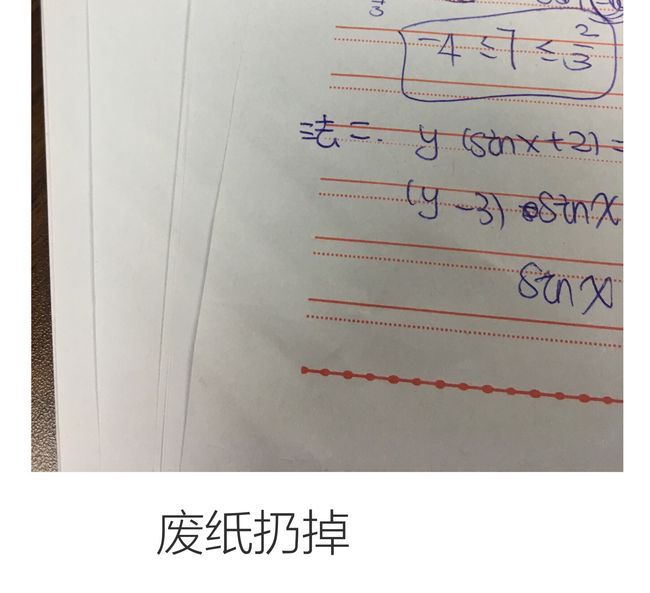 3
-4≤7≤2/3
法二. y(sinx+2)=
(y-3) sinx
sinx
废纸扔掉